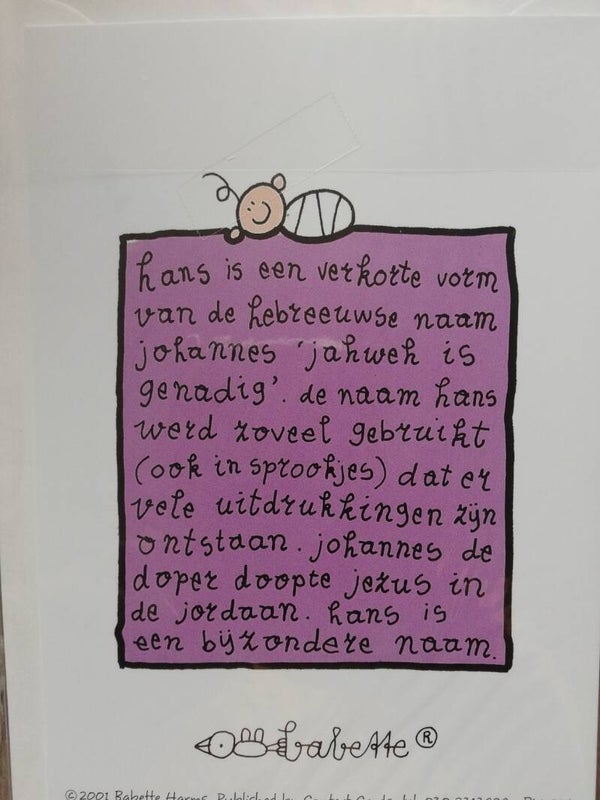 hans is een verkorte vorm
van de hebreeuwse naam
johannes 'jahweh is
genadig'. de naam hans
werd zoveel gebruikt
(ook in sprookjes) dat er
vele uitdrukkingen zijn
ontstaan. johannes de
doper doopte jezus in
de jordaan. hans is
een bijzondere naam.
babette ®
©2001 Babette Harms. Published by